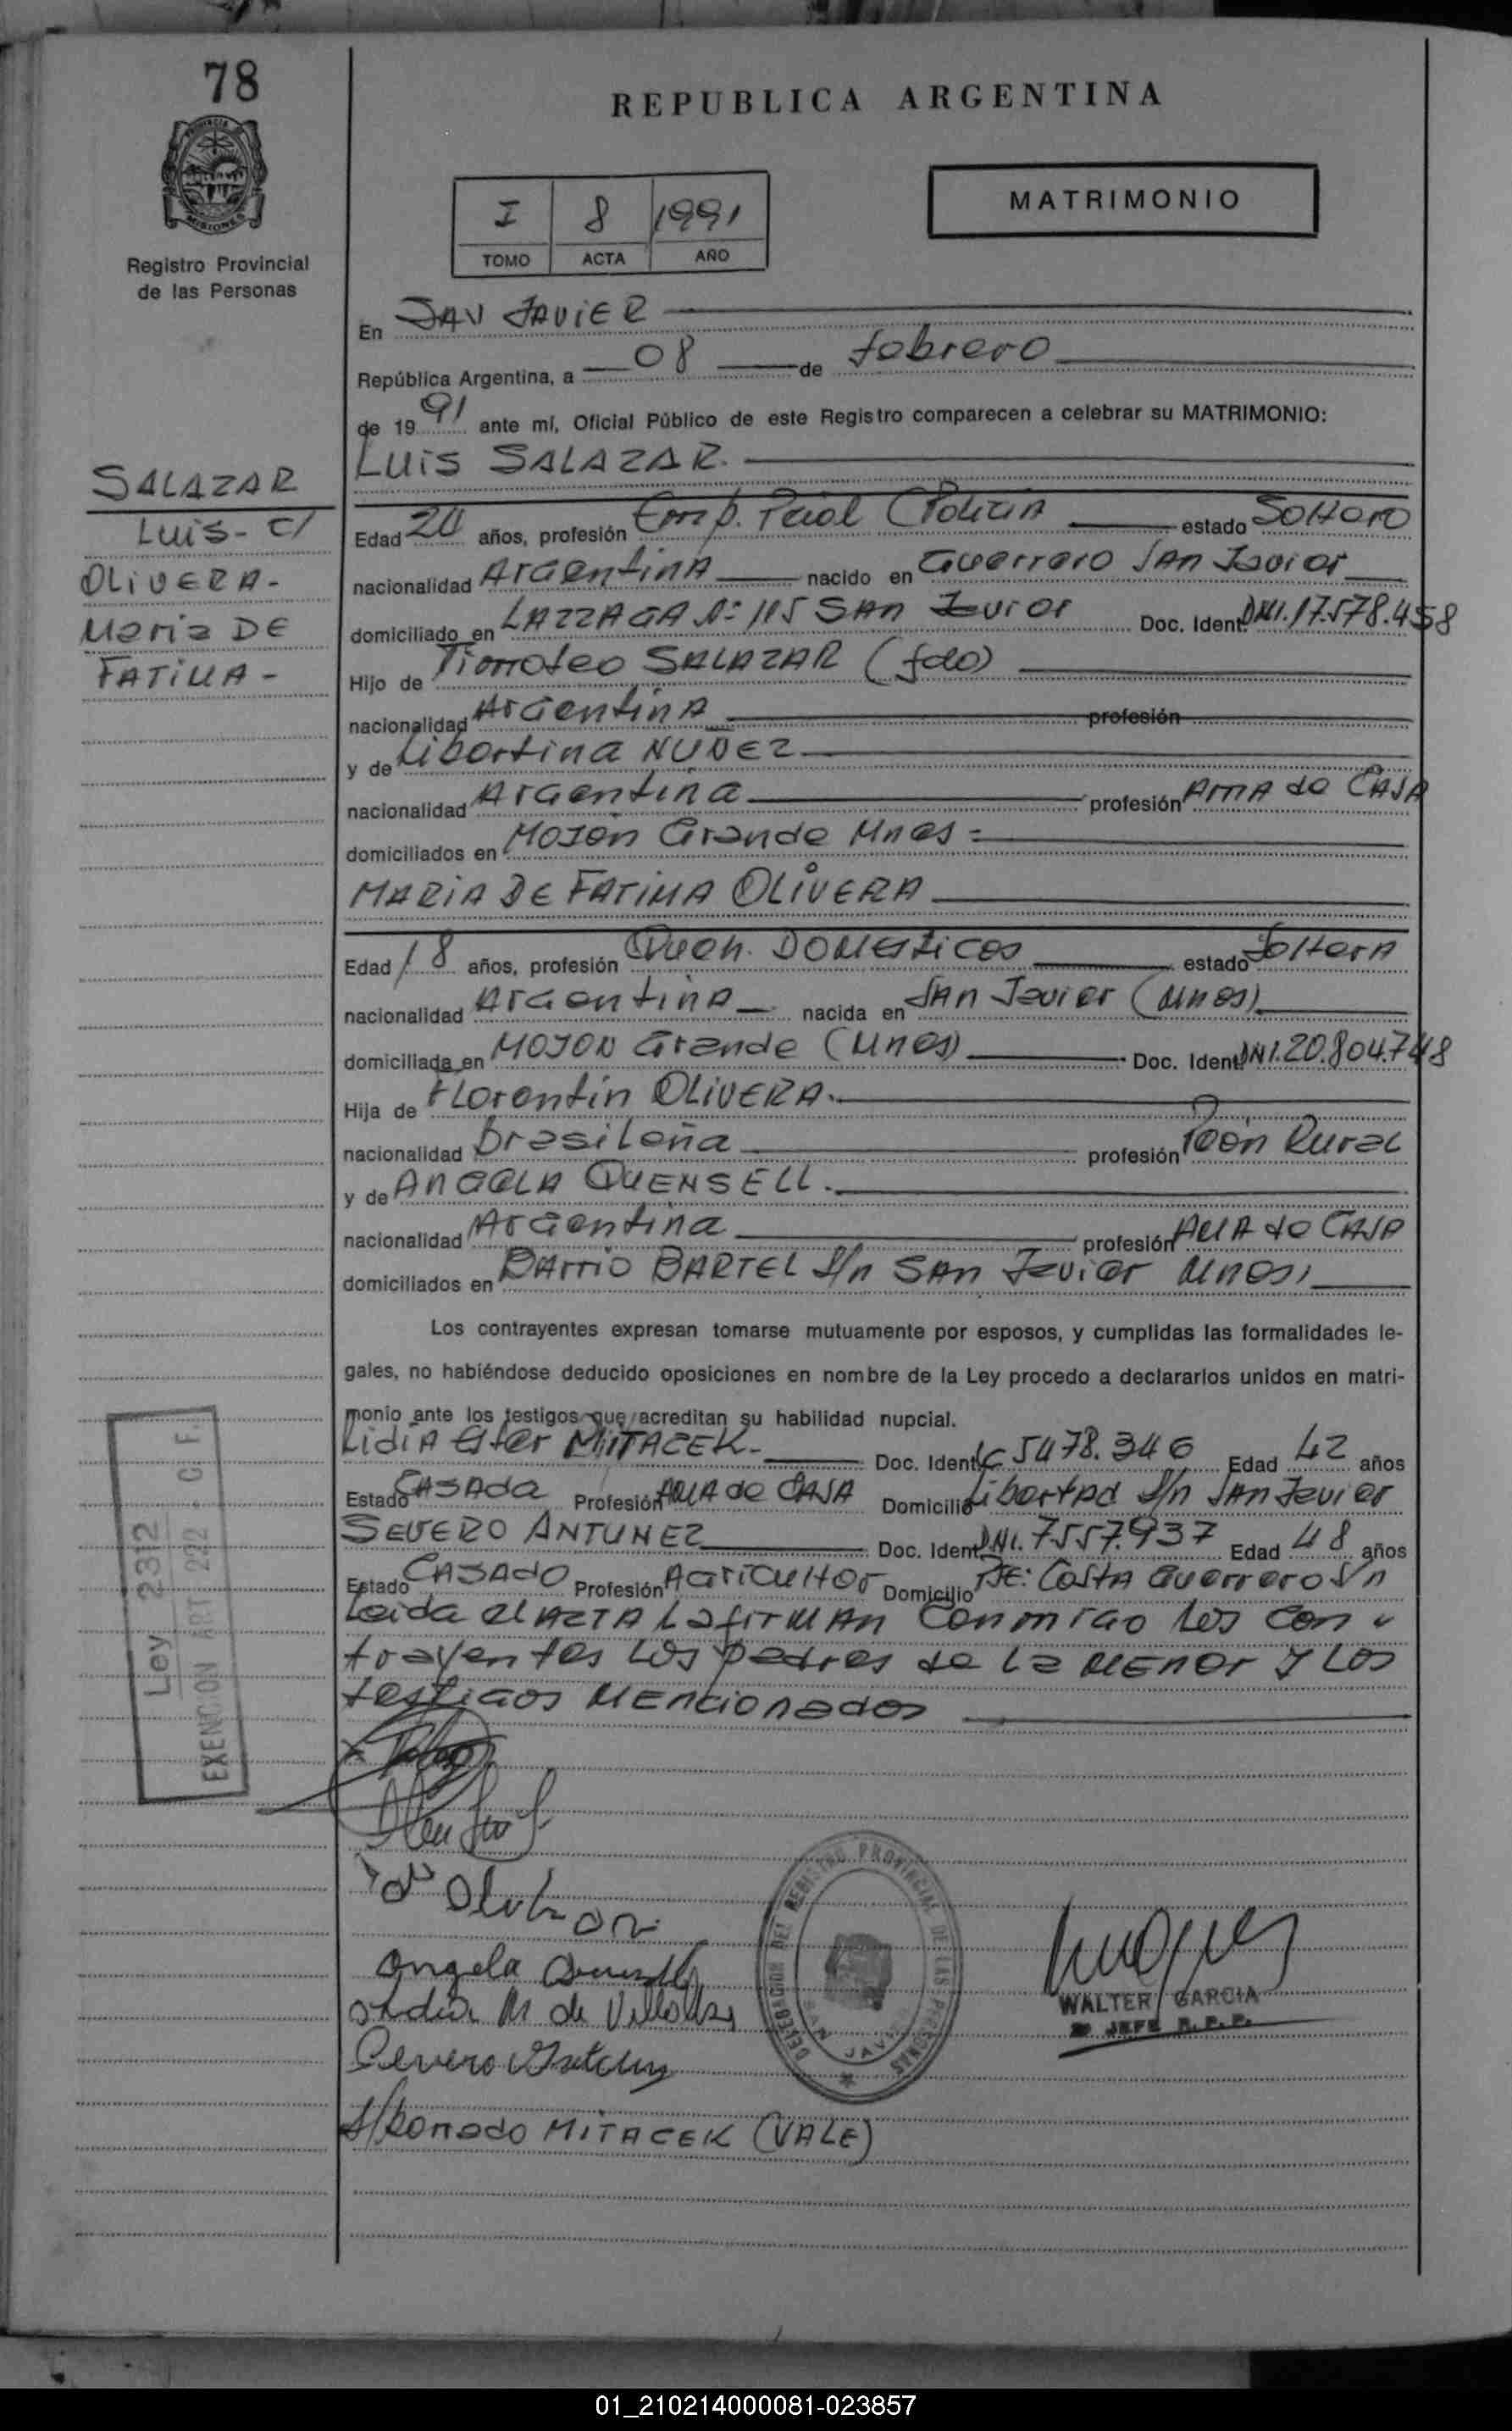 78
PROVINCIA
MISIONES
Registro Provincial
de las Personas
REPUBLICA ARGENTINA
I 8 1991
TOMO ACTA AÑO
MATRIMONIO
En SAN JAVIER
República Argentina, a 08 de febrero
de 1991 ante mí, Oficial Público de este Registro comparecen a celebrar su MATRIMONIO:
LUIS SALAZAR.
SALAZAR
LUIS - C/
OLIVERA -
Maria DE
FATIMA -
Edad años, profesión Emp. Pcial (Policia estado Soltero
nacionalidad Argentina nacido en Guerrero San Javier
domiciliado en LAZZAGA Nº 115 SAN Javier Doc. Ident. DNI. 17.578.458
Hijo de Timoteo SALAZAR (fdo)
nacionalidad Argentina profesión
y de Libertina NUÑEZ
nacionalidad Argentina profesión AMA de CASA
domiciliados en MOJON Grande Mnes =
MARIA DE FATIMA OLIVERA
Edad 18 años, profesión Queh. DOMESTICOS estado Soltera
nacionalidad Argentina nacida en SAN Javier (Mnes)
domiciliada en MOJON Grande (Mnes) Doc. Ident. DNI. 20.804.748
Hija de Florentin OLIVERA.
nacionalidad Brasileña profesión Peón Rural
y de ANGELA QUENSELL.
nacionalidad Argentina profesión AMA de CASA
domiciliados en BArrio BARTEL S/n SAN Javier Mnes,
Los contrayentes expresan tomarse mutuamente por esposos, y cumplidas las formalidades le-
gales, no habiéndose deducido oposiciones en nombre de la Ley procedo a declararlos unidos en matri-
monio ante los testigos que acreditan su habilidad nupcial.
Lidia Ester MITACEK - Doc. Ident. LC 5478.346 Edad 42 años
Estado CASAda Profesión AMA de CASA Domicilio Libertad S/n SAN Javier
SEVERO ANTUNEZ Doc. Ident. DNI. 7.557.937 Edad 48 años
Estado CASADO Profesión Agricultor Domicilio Costa Guerrero S/n
Leida el ACTA La firman conmigo los con
trayentes los padres de la menor y los
testigos mencionados
Ley 2312
EXENCION ART 222 - C F.
Angela
M de
Severo
S/borrado MITACEK (VALE)
DELEGACION DEL REGISTRO PROVINCIAL DE LAS PERSONAS
SAN JAVIER
WALTER GARCIA
JEFE R. P. P.
01_210214000081-023857